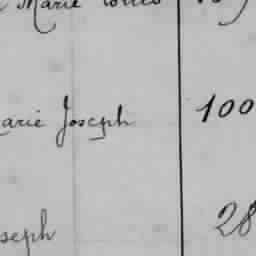 Marie
arie Joseph 100
seph 28